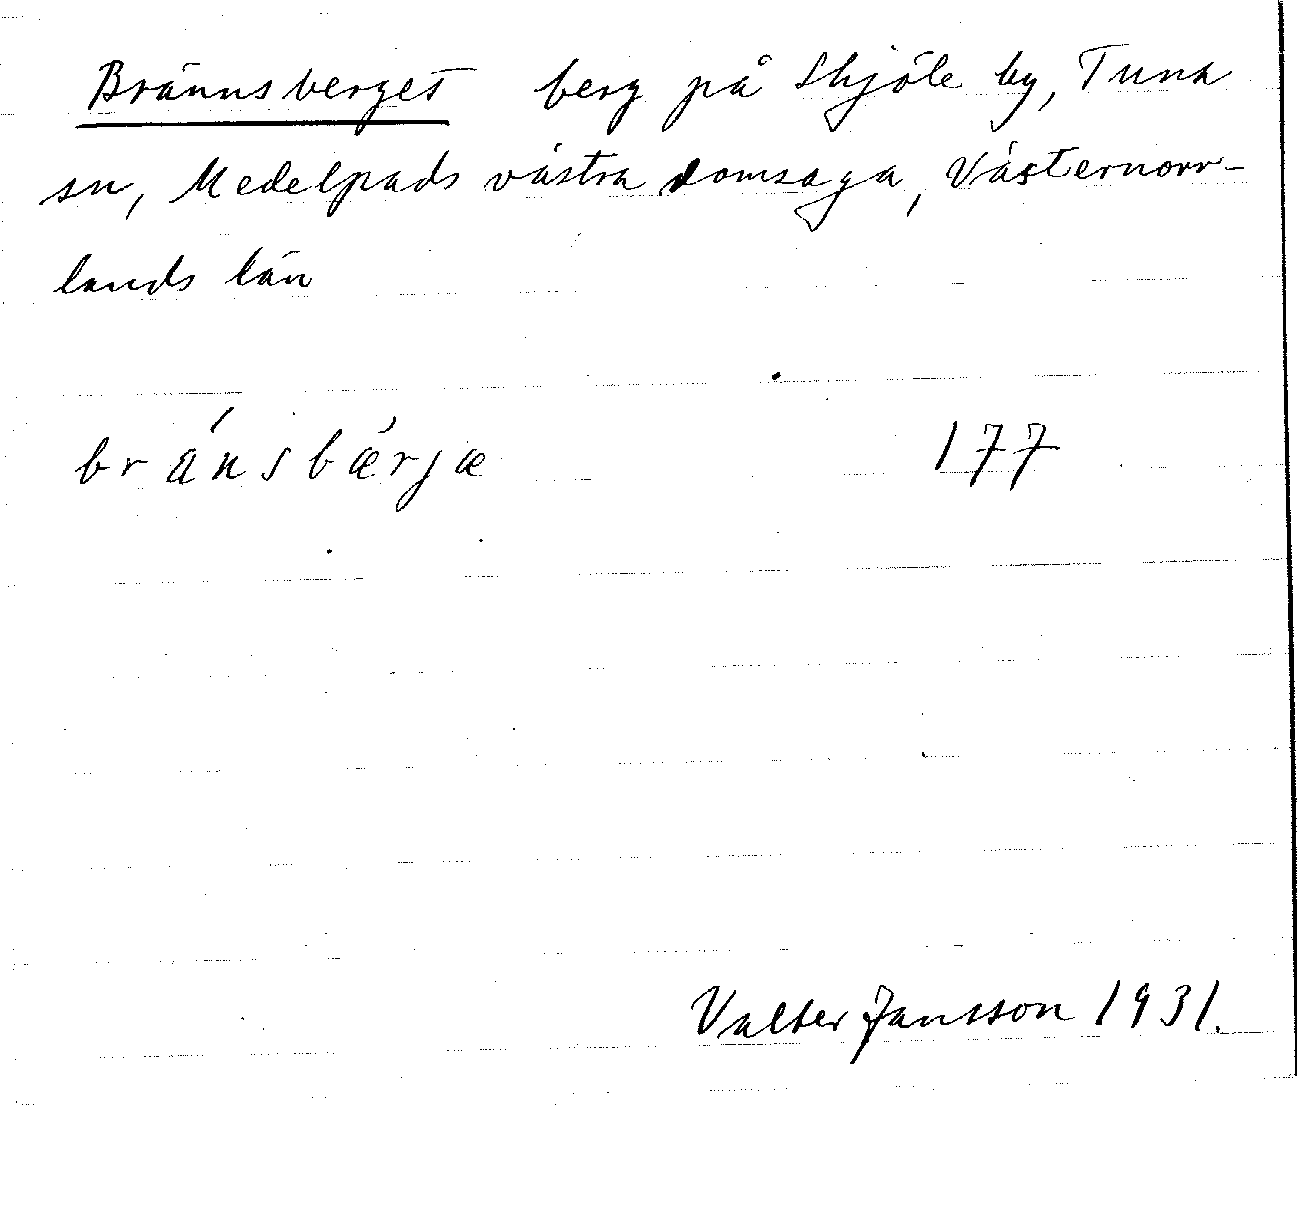 Brännsberget berg på Skjöle by, Tuna
sn, Medelpads västra domsaga, Västernorr-
lands län
bránsbǽrjæ 177
Valter Jansson 1931.